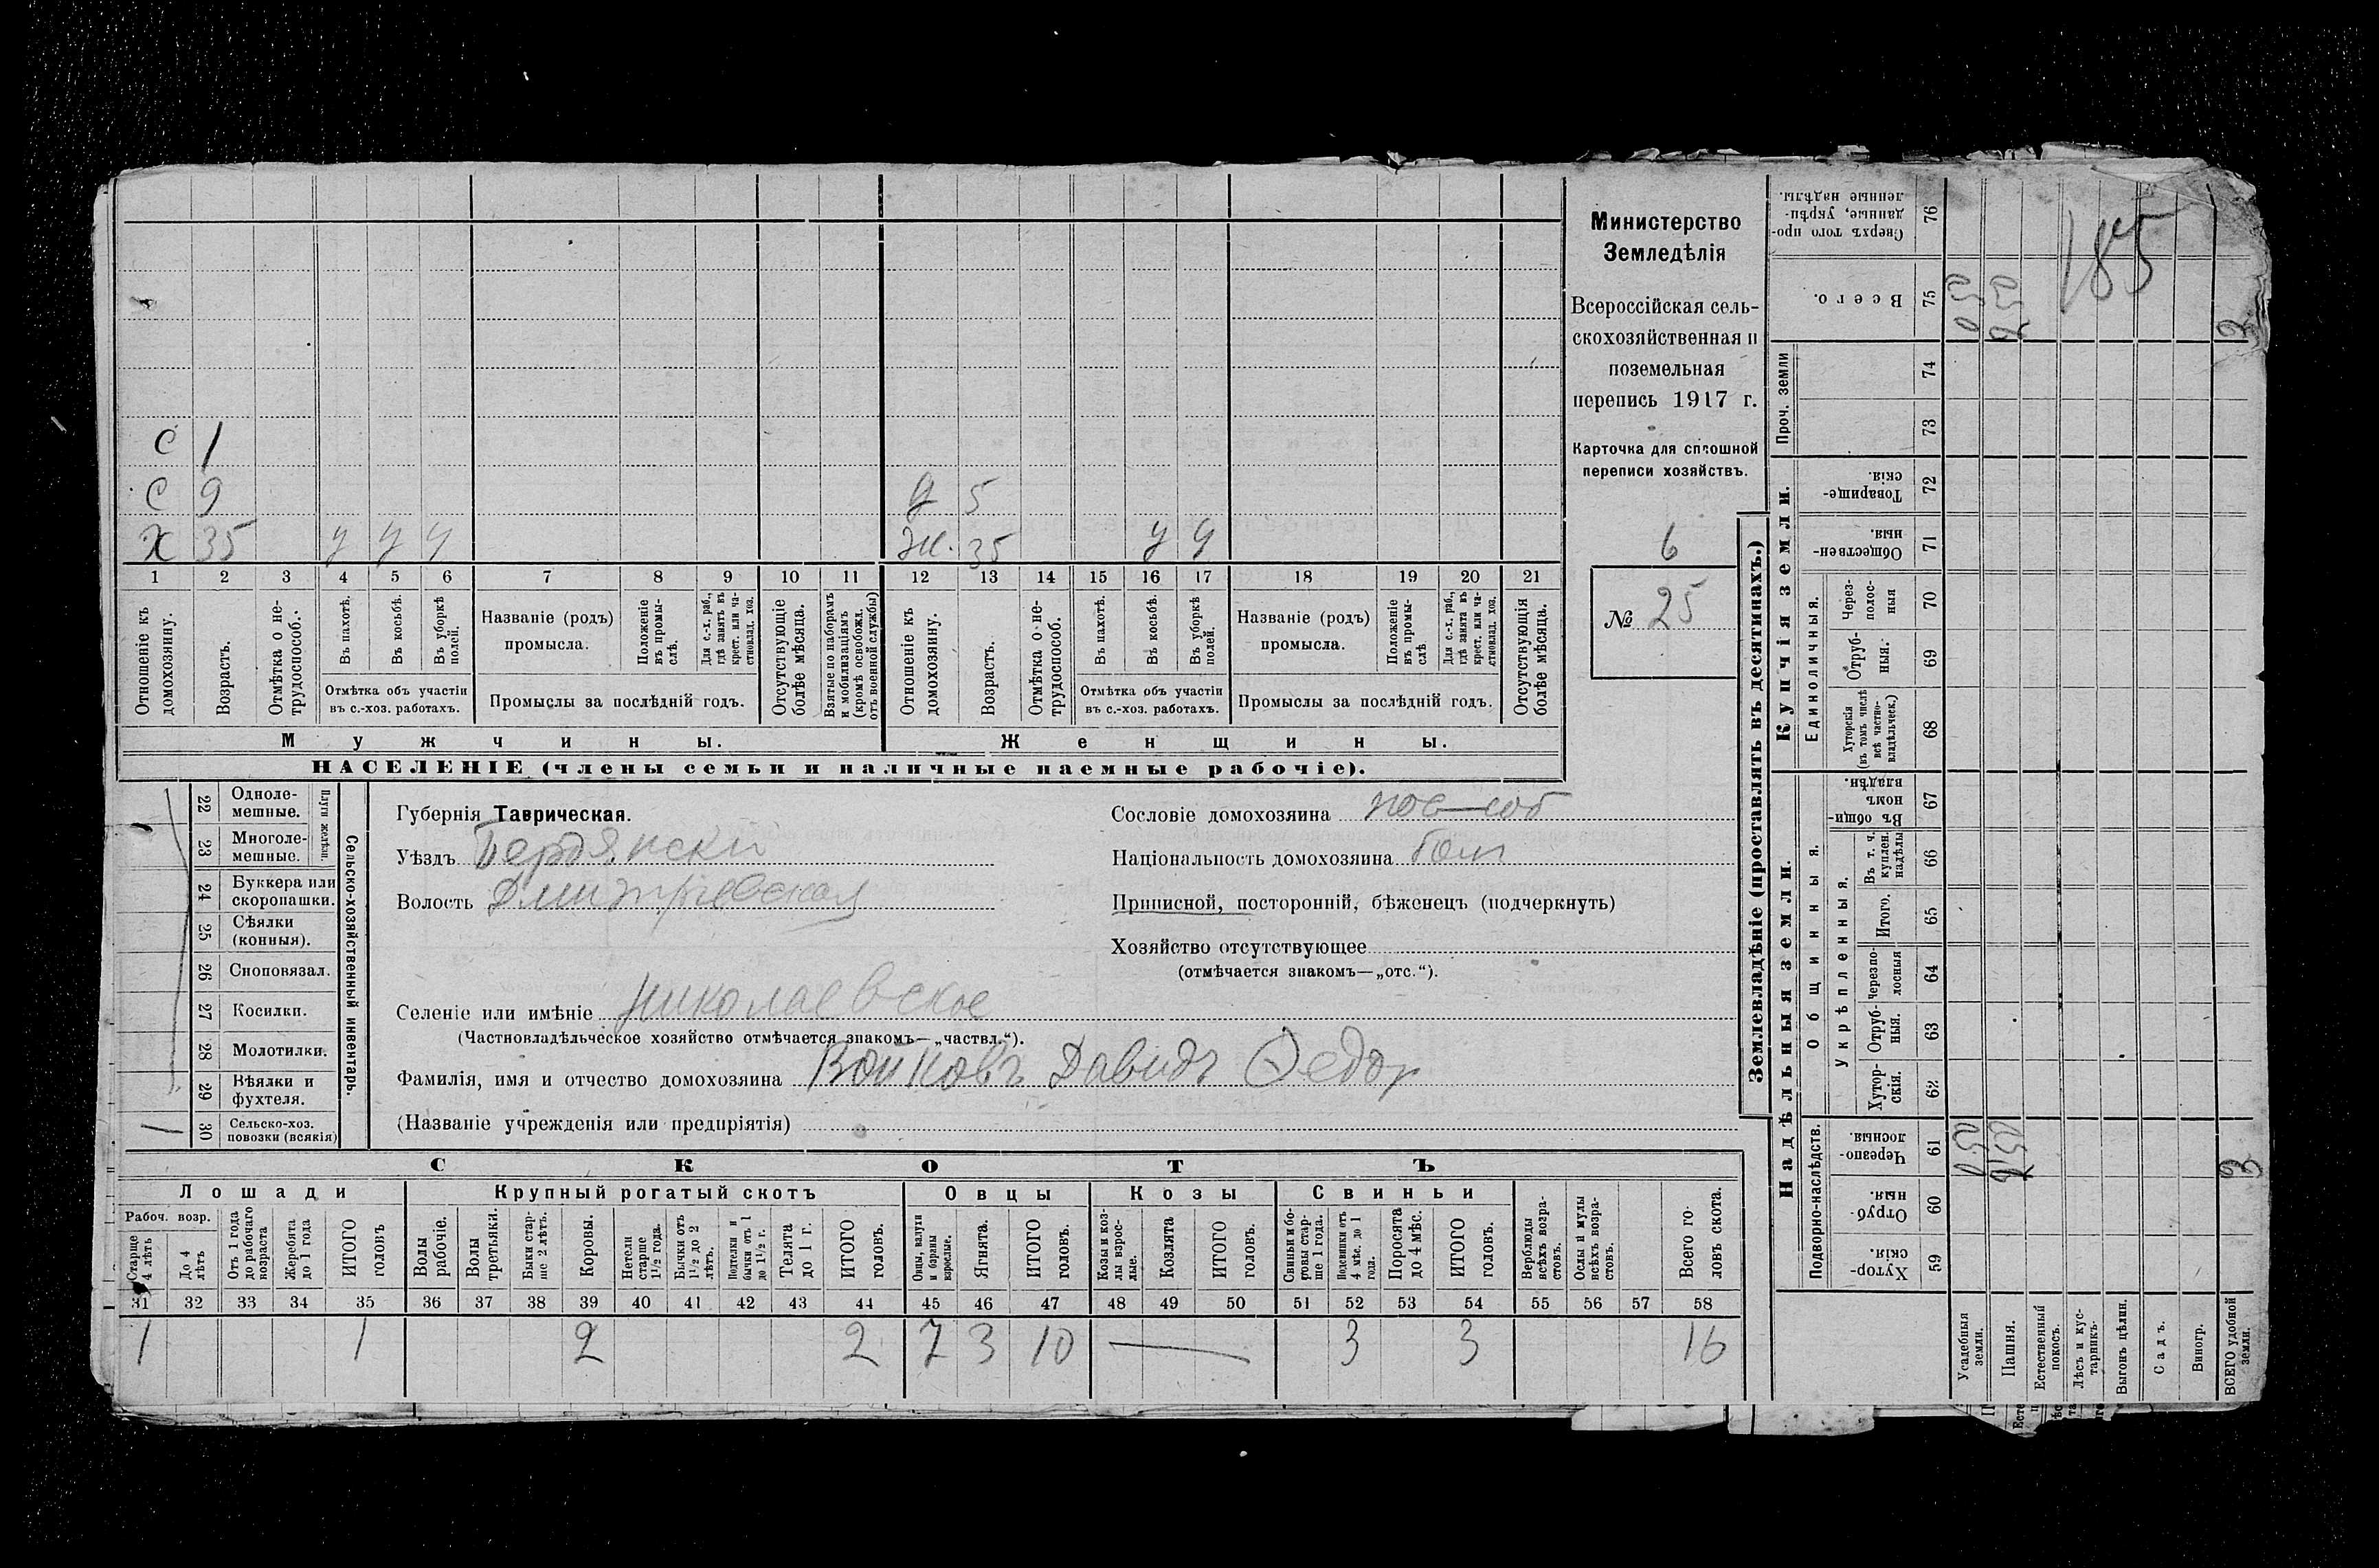 Министерство
Земледѣлія
Всероссійская сель-
скохозяйственная и
поземельная
перепись 1917 г.
Карточка для сплошной
переписи хозяйствъ.
6
№ 25
185
С 1
С 9 Д 5
Х 35 у у у Ж. 35 у у
1 2 3 4 5 6 7 8 9 10 11 12 13 14 15 16 17 18 19 20 21
Отношеніе къ домохозяину.
Возрастъ.
Отмѣтка о не-трудоспособ.
Въ пахотѣ.
Въ косьбѣ.
Въ уборкѣ полей.
Отмѣтка объ участіи въ с.-хоз. работахъ.
Названіе (родъ) промысла.
Положеніе въ промы-слѣ.
Для с.-х. раб., гдѣ занятъ въ крест. или ча-стновлад. хоз.
Промыслы за послѣдній годъ.
Отсутствующіе болѣе мѣсяца.
Взятые по наборамъ и мобилизаціямъ (кромѣ освобожд. отъ военной службы)
Отношеніе къ домохозяину.
Возрастъ.
Отмѣтка о не-трудоспособ.
Въ пахотѣ.
Въ косьбѣ.
Въ уборкѣ полей.
Отмѣтка объ участіи въ с.-хоз. работахъ.
Названіе (родъ) промысла.
Положеніе въ промы-слѣ
Для с.-х. раб., гдѣ занята въ крест. или ча-стновлад. хоз.
Промыслы за послѣдній годъ.
Отсутствующія болѣе мѣсяца.
Мужчины. Женщины.
НАСЕЛЕНІЕ (члены семьи и наличные наемные рабочіе).
Сельско-хозяйственный инвентарь.
Плуги желѣзн.
22 Одноле-мешные.
23 Многоле-мешные.
24 Буккера или скоропашки.
25 Сѣялки (конныя).
26 Сноповязал.
27 Косилки.
28 Молотилки.
29 Вѣялки и фухтеля.
1 30 Сельско-хоз. повозки (всякія)
Губернія Таврическая.
Уѣздъ Бердянскій
Волость Дмитріевская
Сословіе домохозяина пос-соб
Національность домохозяина болг
Приписной, посторонній, бѣженецъ (подчеркнуть)
Хозяйство отсутствующее
(отмѣчается знакомъ—„отс.“).
Селеніе или имѣніе Николаевское
(Частновладѣльческое хозяйство отмѣчается знакомъ—„частвл.“).
Фамилія, имя и отчество домохозяина Войковъ Давидъ Федор
(Названіе учрежденія или предпріятія)
СКОТЪ
Лошади Крупный рогатый скотъ Овцы Козы Свиньи
Рабоч. возр.
Старше 4 лѣтъ
До 4 лѣтъ
Отъ 1 года до рабочаго возраста
Жеребята до 1 года
ИТОГО головъ
Волы рабочіе.
Волы третьяки.
Быки стар-ше 2 лѣтъ.
Коровы.
Нетели старше 1½ года.
Бычки отъ 1½ до 2 лѣтъ.
Подтелки и бычки отъ 1 до 1½ г.
Телята до 1 г.
ИТОГО головъ.
Овцы, валухи и бараны взрослые.
Ягнята.
ИТОГО головъ.
Козы и коз-лы взрос-лые.
Козлята
ИТОГО головъ.
Свиньи и бо-ровы стар-ше 1 года.
Подсвинки отъ 4 мѣс. до 1 года.
Поросята до 4 мѣс.
ИТОГО головъ.
Верблюды всѣхъ возра-стовъ.
Ослы и мулы всѣхъ возра-стовъ.
Всего го-ловъ скота.
31 32 33 34 35 36 37 38 39 40 41 42 43 44 45 46 47 48 49 50 51 52 53 54 55 56 57 58
1 1 2 2 7 3 10 — 3 3 16
Землевладѣніе (проставлять въ десятинахъ.)
Надѣльныя земли. Купчія земли.
Подворно-наслѣдств.
Общинныя.
Укрѣпленныя.
Единоличныя.
Проч. земли
Хутор-скія. 59
Отруб-ныя. 60
Черезпо-лосныя. 61
Хутор-скія. 62
Отруб-ныя. 63
Черезпо-лосныя 64
Итого. 65
Въ т. ч. куплен. надѣлы 66
Въ общин-номъ владѣн. 67
Хуторскія (въ томъ числѣ всѣ частно-владѣльческ.) 68
Отруб-ныя. 69
Через-полос-ныя 70
Обществен-ныя. 71
Товарище-скія. 72
73
74
Всего. 75
Сверхъ того про-данные, укрѣп-ленные надѣлы. 76
Усадебныя земли.
Пашня.
Естественный покосъ.
Лѣсъ и кус-тарникъ.
Выгонъ цѣлин.
Садъ.
Виногр.
ВСЕГО удобной земли.